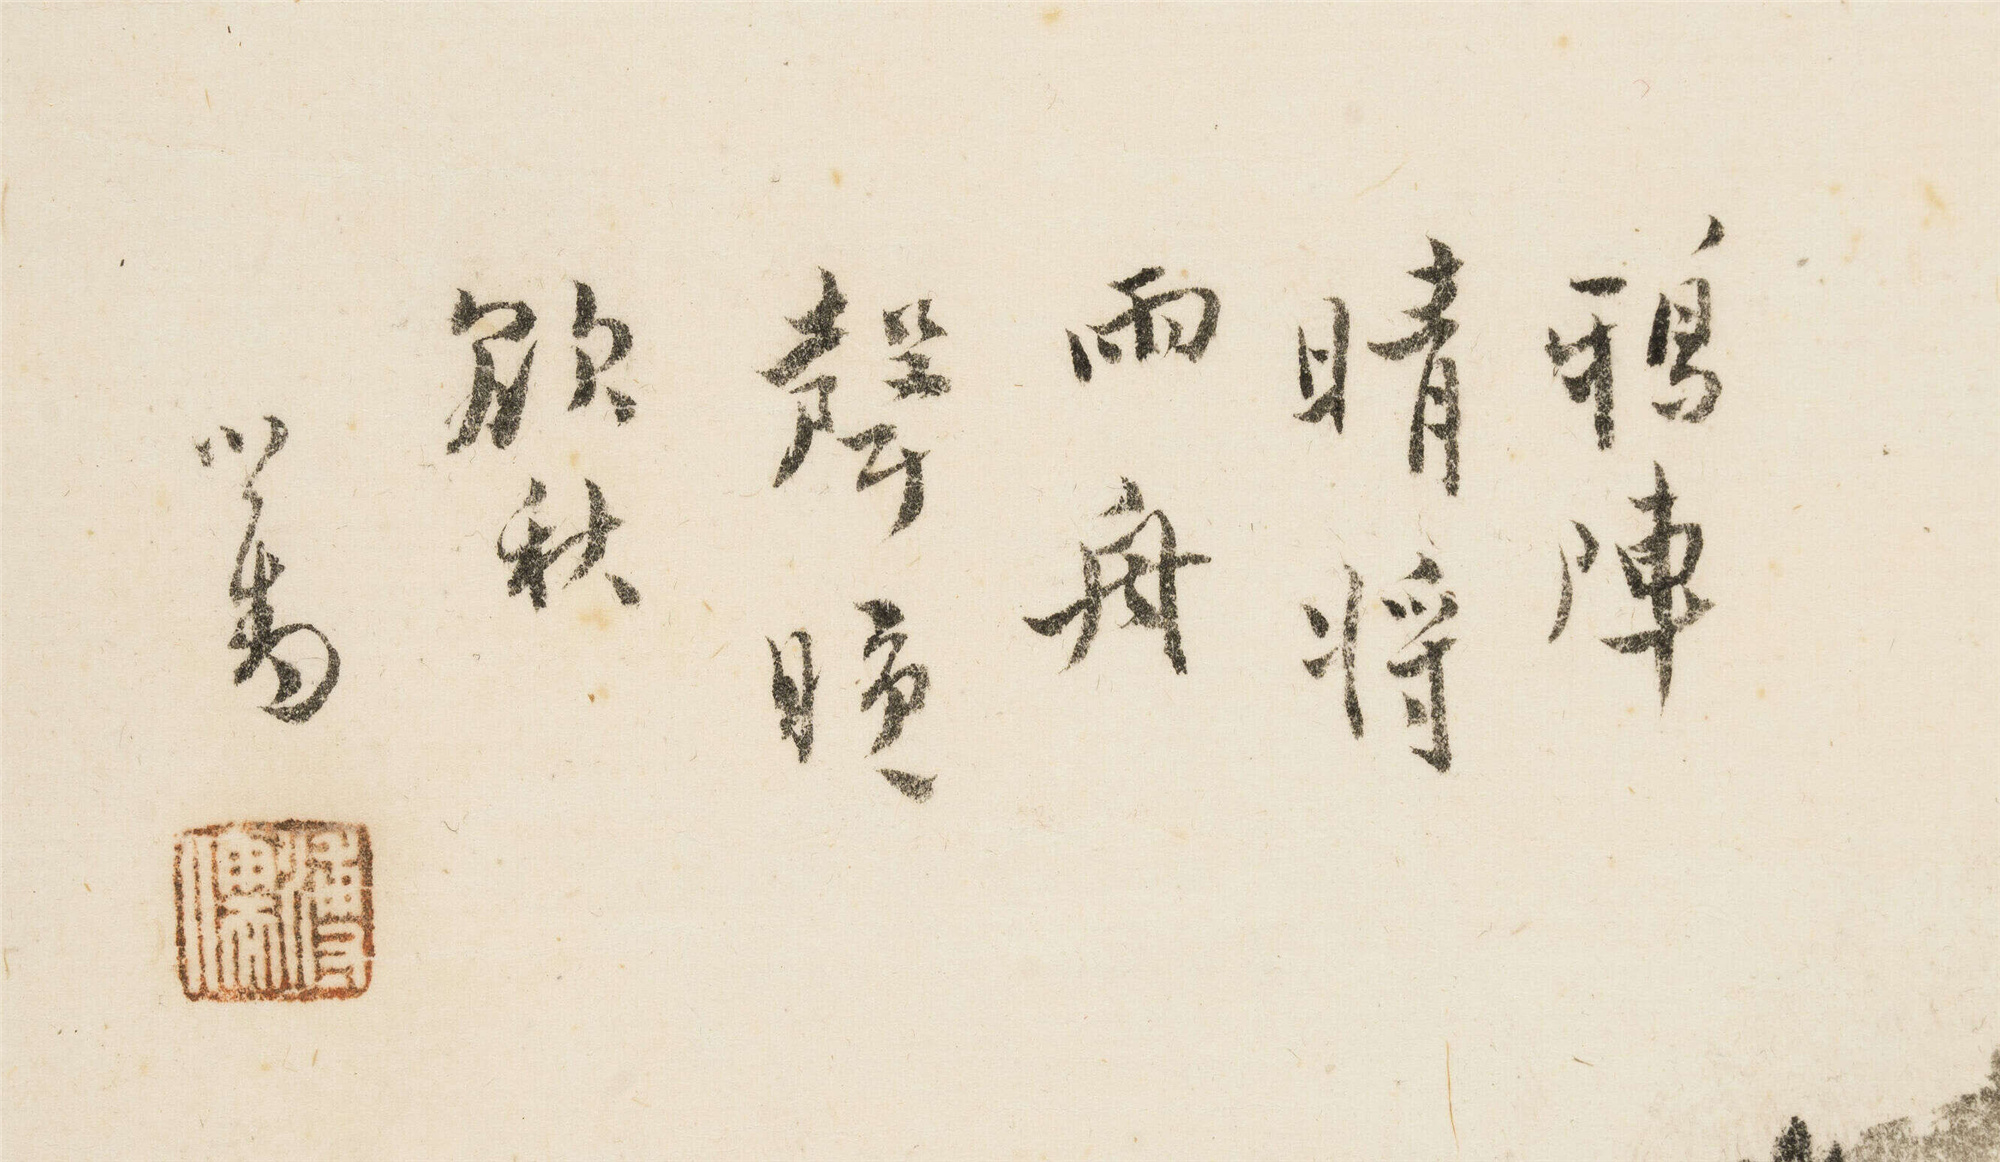 鴉陣
晴將
雨舟
聲暝
欲秋
心畬
溥儒